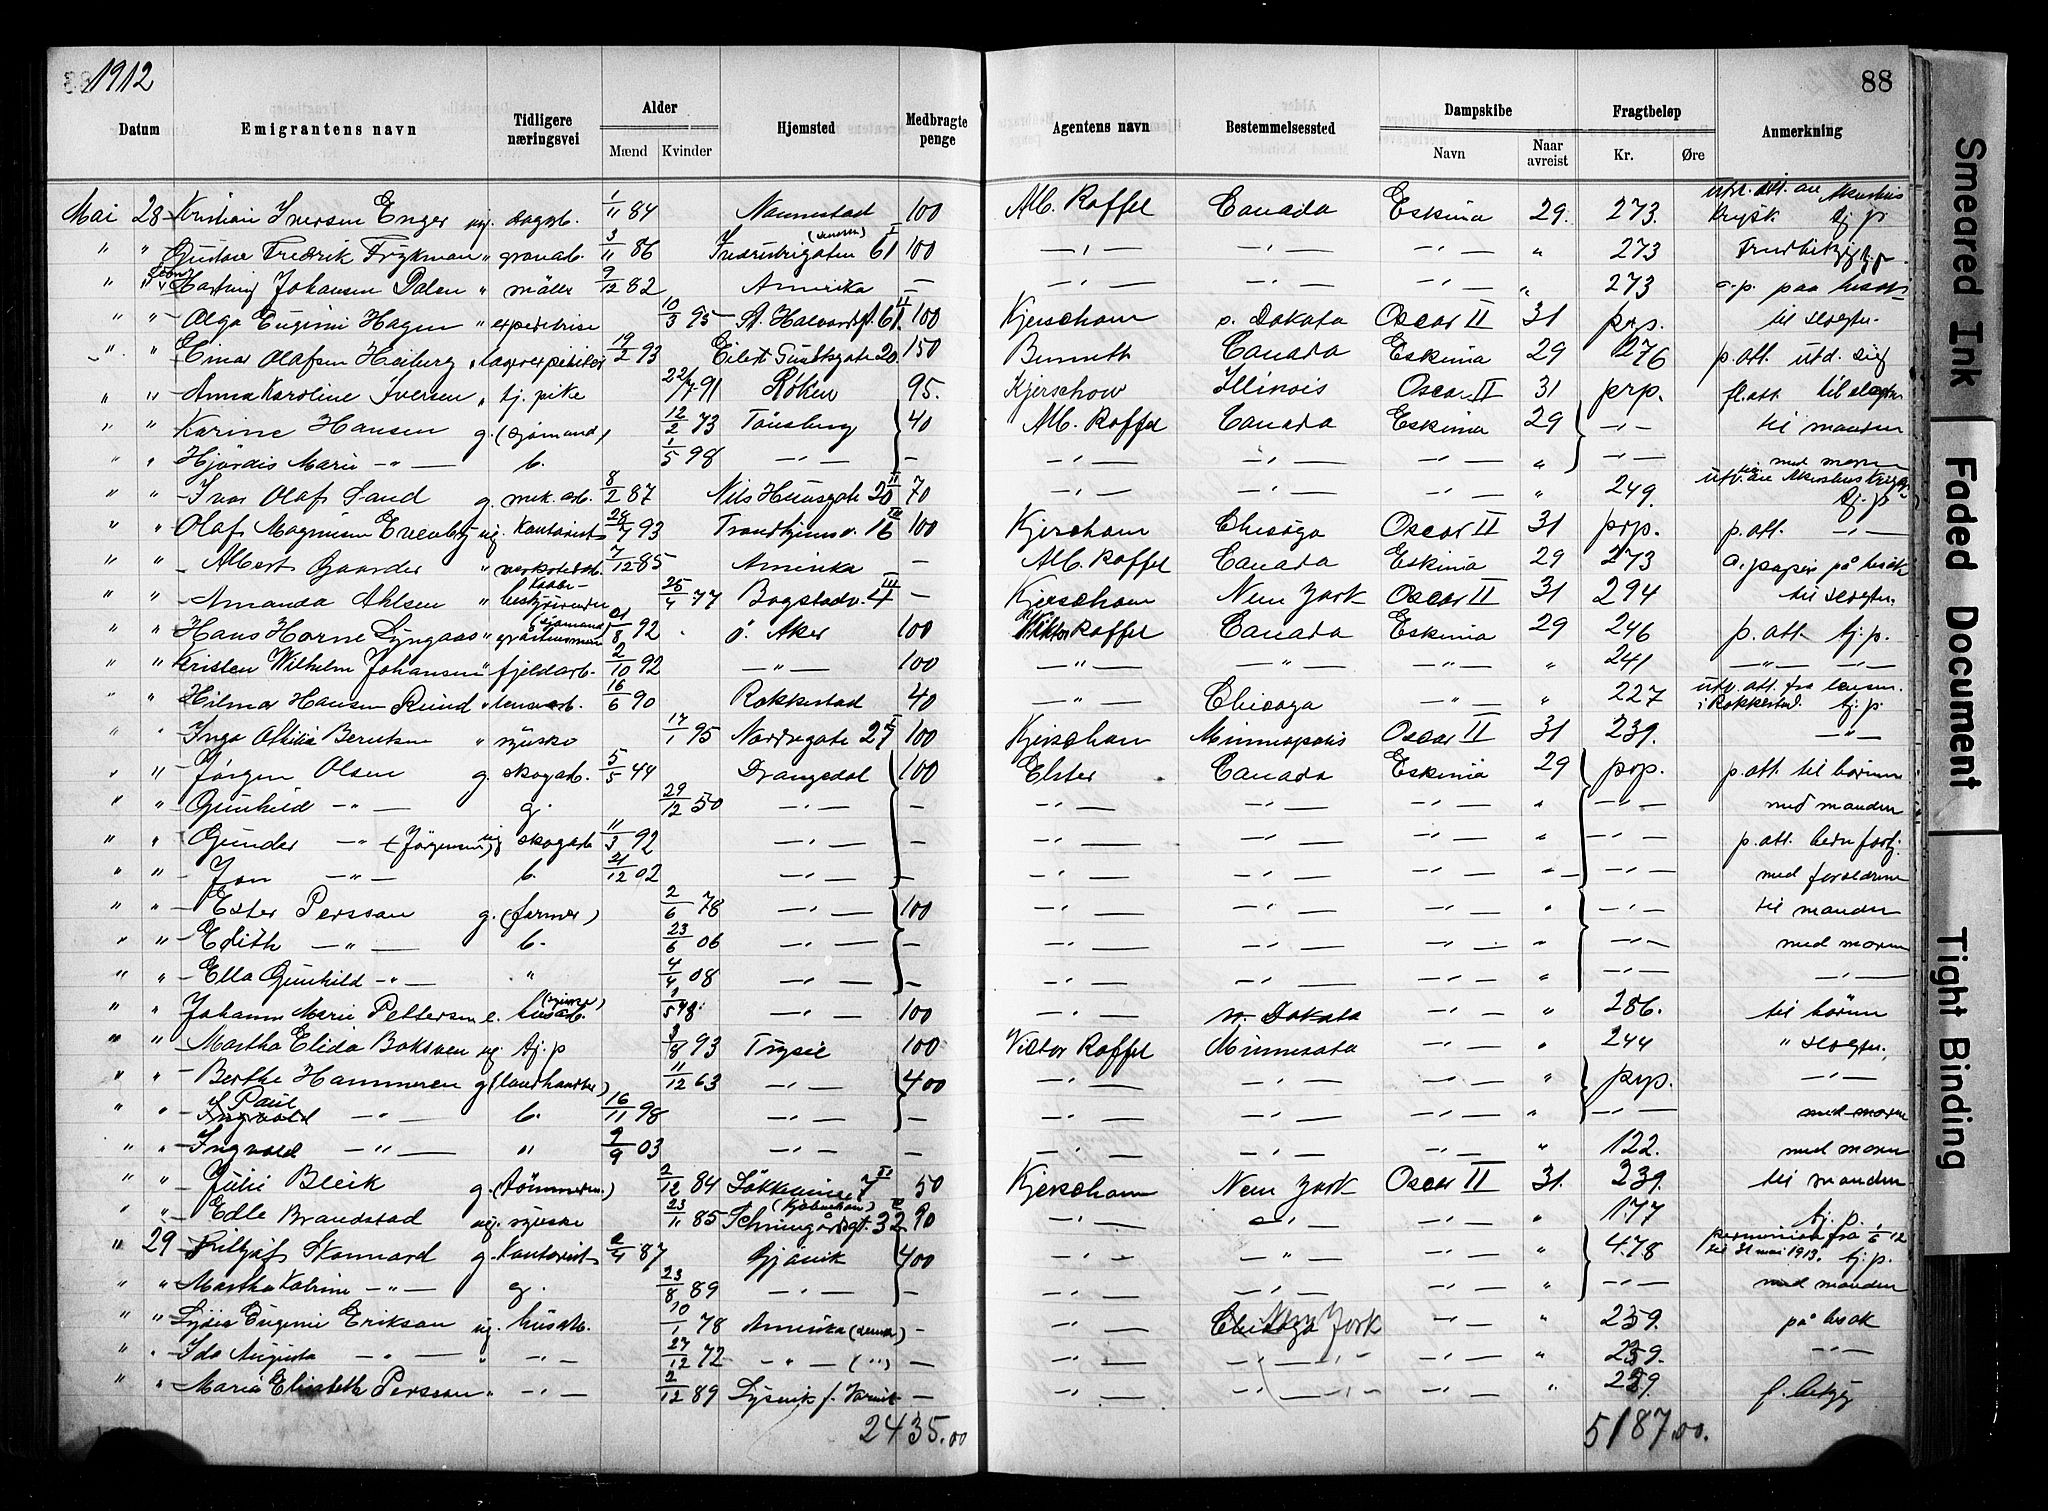 1912
88
Datum Emigrantens navn Tidligere næringsvei Alder Mænd Kvinder Hjemsted Medbragte penge Agentens navn Bestemmelsessted Dampskibe Navn Naar avreist Fragtbeløp Kr. Øre Anmerkning
Mai 28 Kristian Iversen Enger ug. dagarb. 1/11 84 Nannestad 100 Alb. Raffel Canada Eskina 29. 273. tj. p.
" " Gustav Fredrik Frykman " 3/11 86 61 I 100 — " — — " — — " — " 273
" " Johansen Dalen " møller 9/12 82 Amerika — — " — — " — — " — " 273 paa besøk
" " Olga Eugenie Hagen " expeditrise 10/3 95 St. Halvardsgt. 61 II 100 Kjerschow s. Dakota Oscar II 31 prp. til slegtn.
" " Einar Olafsen Heiberg " lagerexpeditør 19/2 93 Eilert Sundtsgate 20. 150 Bennett Canada Eskina 29 276 p. att.
" " Anna Karoline Iversen " tj. pike 22/7 91 Røken 95. Kjerschow Illinois Oscar II 31 prp. fl. att. til slegtn.
" " Karine Hansen g. (sjømand) 12/2 73 Tønsberg 40 Alb. Raffel Canada Eskina 29 — " — til manden
" " Hjørdis Marie — " — b. 1/5 98 — " — — — " — — " — — " — " — " — med moren
" " Ivar Olaf Sand g. mek. arb. 8/2 87 Nils Huusgate 20 II 70 — " — — " — — " — " 249. tj. p.
" " Olaf Magnussen Evenby ug. kontorist 24/7 93 Trondhjemsv. 16 III 100 Kjerschow Chicago Oscar II 31 prp. p. att. — " —
" " Albert Gaarder " verkstedarb. 7/12 85 Amerika — Alb. Raffel Canada Eskina 29 273 på besøk
" " Amanda Ahlsen " bestyrerinde 25/4 77 Bogstadv. 4 III — Kjerschow New York Oscar II 31 294 til slegtn.
" " Hans Horne Lyngaas " (sjømand) /8 92 ø. Aker 100 Viktor Raffel Canada Eskina 29 246 p. att. tj. p.
" " Kristen Wilhelm Johansen " fjeldarb. 2/10 92 — " — 100 — " — — " — — " — " 241 — " — — " —
" " Hilmar Hansen Rund " 16/6 90 Rakkestad 40 — " — Chicago — " — " 227 utv. att. fra lensm. i Rakkestad. tj. p.
" " Inga Othilie Berntsen " syerske 17/1 95 Nordregate 27 I 100 Kjerschow Minneapolis Oscar II 31 239. — " —
" " Jørgen Olsen g. skogarb. 5/5 44 Drangedal 100 Elster Canada Eskina 29 prp. p. att. til børnene
" " Gunhild — " — g. 29/12 50 — " — — — " — — " — — " — " — " — med manden
" " Gunder — " — (Jørgensen) ug. skogarb. 11/3 92 — " — — — " — — " — — " — " — " — p. att.
" " Jon — " — b. 21/12 02 — " — — — " — — " — — " — " — " — med foreldrene
" " Ester Persson g. (farmer) 2/6 78 — " — 100 — " — — " — — " — " — " — til manden
" " Edith — " — b. 23/6 06 — " — — — " — — " — — " — " — " — med moren
" " Ella Gunhild — " — " 4/4 08 — " — — — " — — " — — " — " — " — — " —
" " Johanne Marie Pettersen e. husarb. 1/5 48 — " — 100 — " — n. Dakota — " — " 286. til børnene
" " Martha Elida Boksveen ug. tj. p 3/8 93 Trysil 100 Victor Raffel Minnesota — " — " 244 " slegtn.
" " Berthe Hammeren g. (landhandler) 11/12 63 — " — 400 — " — — " — — " — " prp. — " —
" " Paul — " — b. 16/11 98 — " — — — " — — " — — " — " — " — med moren
" " Ingvald — " — " 9/9 03 — " — — — " — — " — — " — " 122. med moren
" " Julie Bleik g. (tømmerm.) 2/12 84 7 II 50 Kjerschow New York Oscar II 31. 239. til manden
" " Edle Brandstad ug. syerske 23/11 85 32 90 — " — — " — — " — " 177 tj. p.
" 29 Fritjof Stannard g. kontorist 2/4 87 Gjøvik 400 — " — — " — — " — " 478 permission fra 1/6 12 til 31 mai 1913. tj. p.
" " Martha Katrine — " — g. 23/8 89 — " — — — " — — " — — " — " — " — med manden
" " Lydia Eugenie Erikson ug. husarb. 10/1 78 Amerika — — " — Chicago New York — " — " 259. på besøk
" " Ida Augusta — " — " — " — 27/12 72 — " — (") — — " — — " — — " — " 259. — " —
" " Maria Elisabeth Persson " — " — 2/12 89 Lysvik — — " — — " — — " — " 259
2435.00
5187.00.
Smeared Ink
Faded Document
Tight Binding